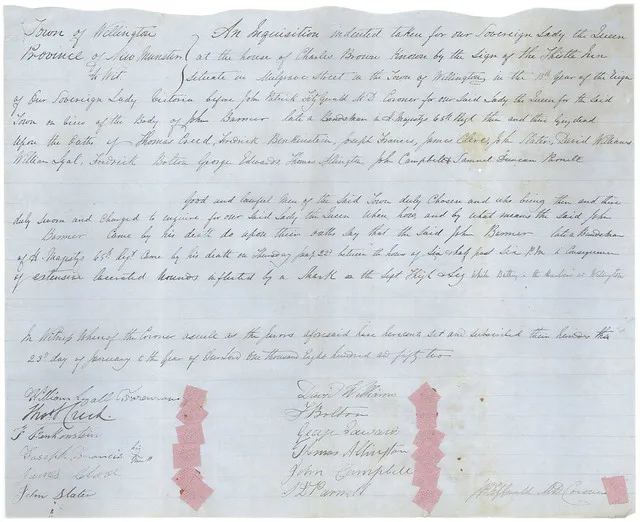 Town of Wellington
Province of New Munster
to Wit
An Inquisition indented taken for our Sovereign Lady the Queen
at the house of Charles Brown Known by the Sign of the Inn
Situate in Mulgrave Street in the Town of Wellington in the 15th Year of the Reign
of Our Sovereign Lady Victoria before John Patrick FitzGerald M D Coroner for our Said Lady the Queen for the Said
Town on View of the Body of John Barmer late a Bandsman in H Majestys 65th Regt then and there lying dead
Upon the Oaths of Thomas Creed, Fredrick Benkenstein, Joseph Francis, James, John Slater, David Williams
William Lyal, Fredrick Bolton George Edwards Thomas John Campbell & Samuel Duncan Parnell
Good and lawful Men of the Said Town duly Chosen and who being then and there
duly Sworn and Charged to enquire for our Said Lady the Queen When how and by what means the Said John
Barmer Came by his death do upon their Oaths Say that the Said John Barmer late a Bandsman
of H Majestys 65th Regt Came by his death on Thursday 22d between the hours of Six & half past Six P.M. in Consequence
of extensive lacerated Wounds inflicted by a Shark on the Thigh & Leg while Bathing in the Harbour at Wellington
In Witness Whereof the Coroner as well as the Jurors aforesaid have hereunto Set and Subscribed their hands this
23d day of January in the Year of Our Lord One thousand Eight hundred and fifty two
William Lyall Foreman
Thos Creed
F Benkenstein
Joseph Francis his
James
John Slater
David Williams
F Bolton
George Edwards
Thomas
John Campbell
S D Parnell
M.D. Coroner